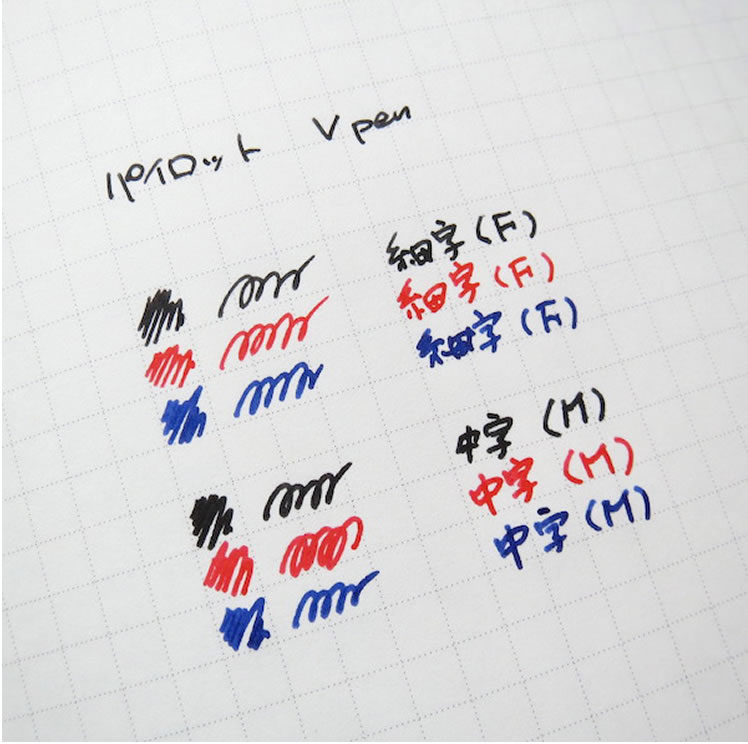 パイロット V pen
細字(F)
細字(F)
細字(F)
中字(M)
中字(M)
中字(M)